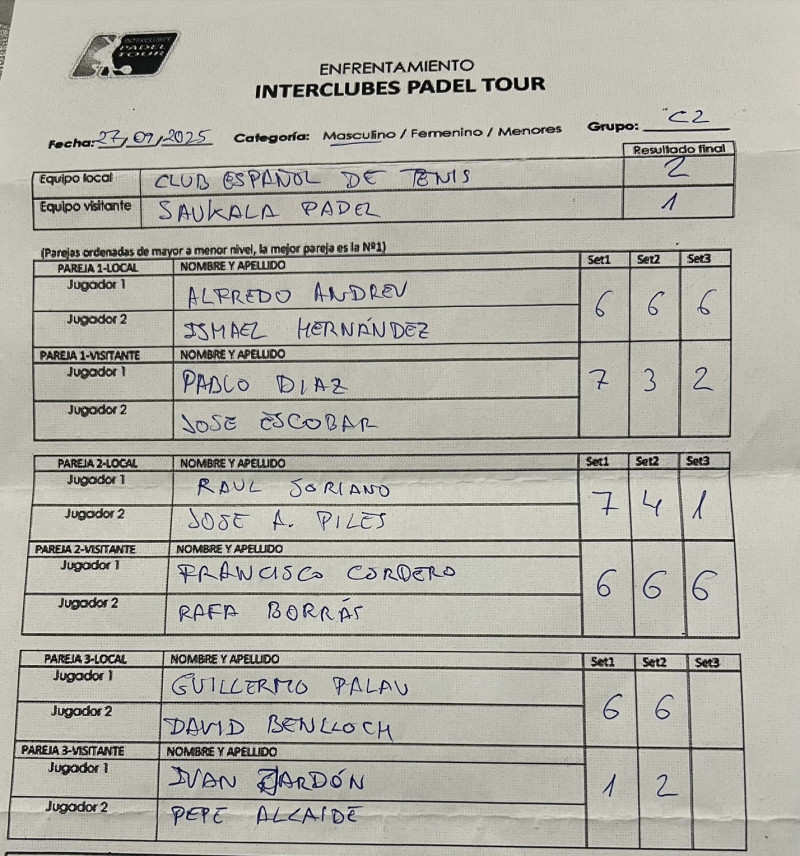 INTERCLUBES
PADEL
TOUR
ENFRENTAMIENTO
INTERCLUBES PADEL TOUR
Fecha: 27/09/2025 Categoría: Masculino / Femenino / Menores Grupo: C2
Resultado final
Equipo local CLUB ESPAÑOL DE TENIS 2
Equipo visitante SAUKALA PADEL 1
(Parejas ordenadas de mayor a menor nivel, la mejor pareja es la Nº1)
PAREJA 1-LOCAL NOMBRE Y APELLIDO Set1 Set2 Set3
Jugador 1 ALFREDO ANDREU
6 6 6
Jugador 2 ISMAEL HERNÁNDEZ
PAREJA 1-VISITANTE NOMBRE Y APELLIDO
Jugador 1 PABLO DIAZ
7 3 2
Jugador 2 JOSE ESCOBAR
PAREJA 2-LOCAL NOMBRE Y APELLIDO Set1 Set2 Set3
Jugador 1 RAUL SORIANO
7 4 1
Jugador 2 JOSE A. PILES
PAREJA 2-VISITANTE NOMBRE Y APELLIDO
Jugador 1 FRANCISCO CORDERO
6 6 6
Jugador 2 RAFA BORRÁS
PAREJA 3-LOCAL NOMBRE Y APELLIDO Set1 Set2 Set3
Jugador 1 GUILLERMO PALAU
6 6
Jugador 2 DAVID BENLLOCH
PAREJA 3-VISITANTE NOMBRE Y APELLIDO
Jugador 1 IVAN JARDÓN
1 2
Jugador 2 PEPE ALCAIDE